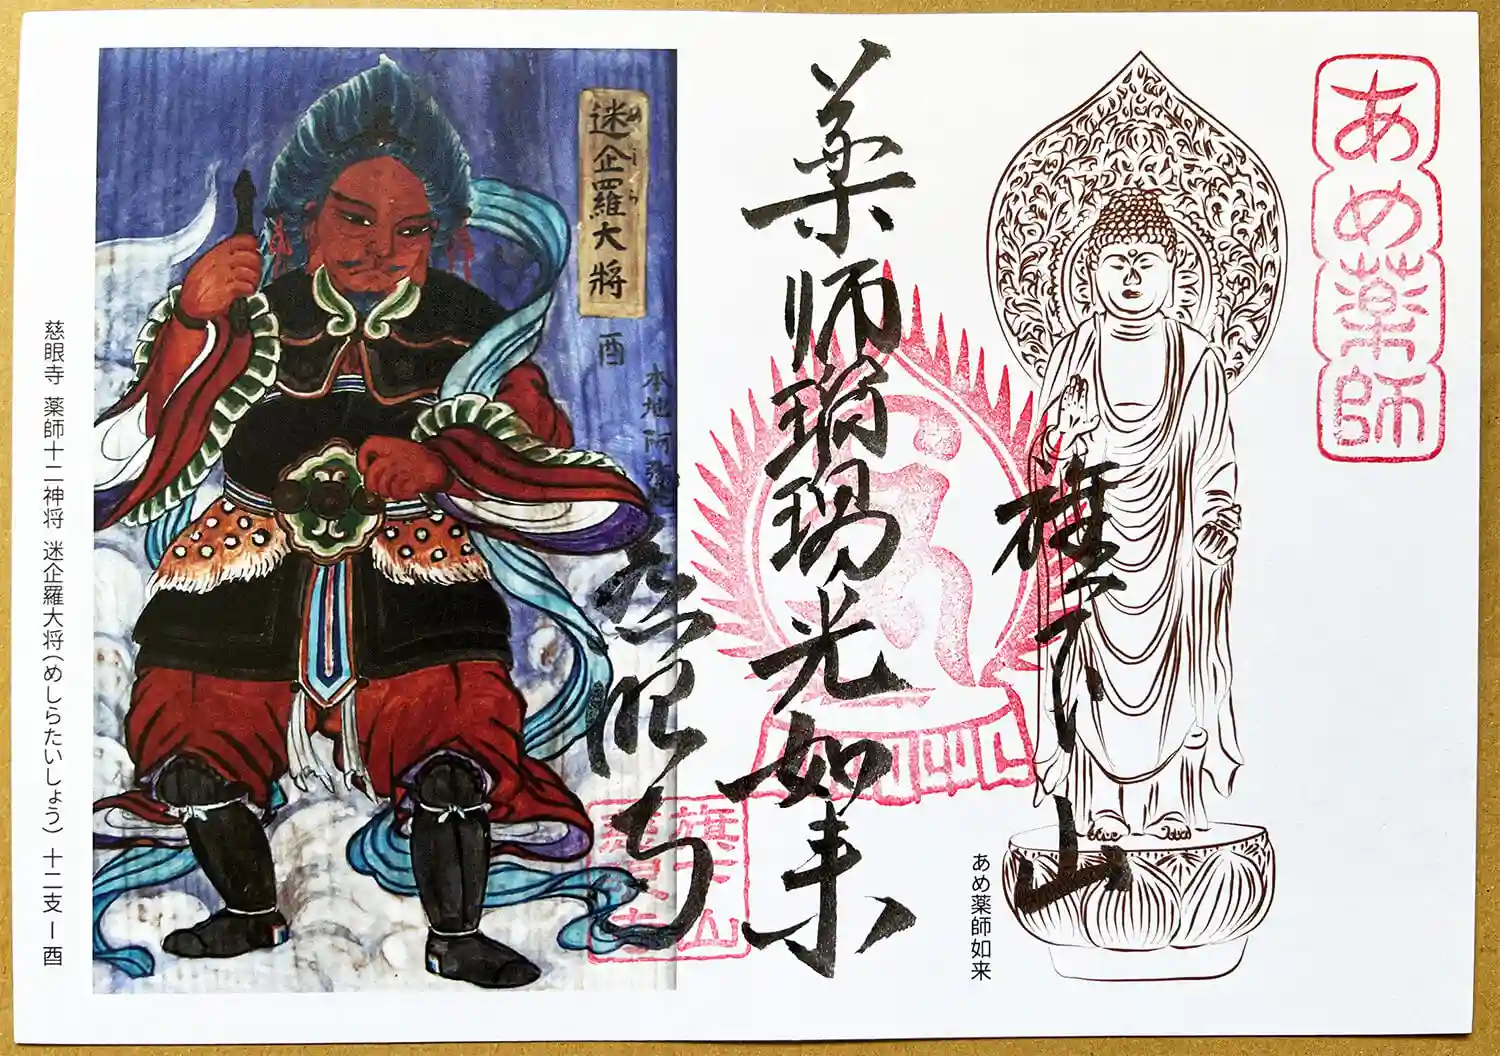 あめ薬師
旗下山
薬師瑠璃光如来
慈眼寺
あめ薬師如来
旗下山
慈眼寺
迷企羅大将
めしくら
酉
本地阿弥
慈眼寺 薬師十二神将 迷企羅大将(めしらたいしょう) 十二支ー酉